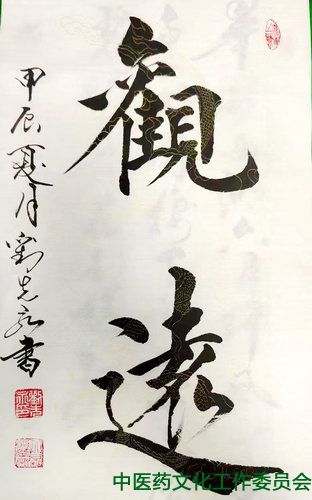 觀遠
甲辰夏月劉書
中医药文化工作委员会